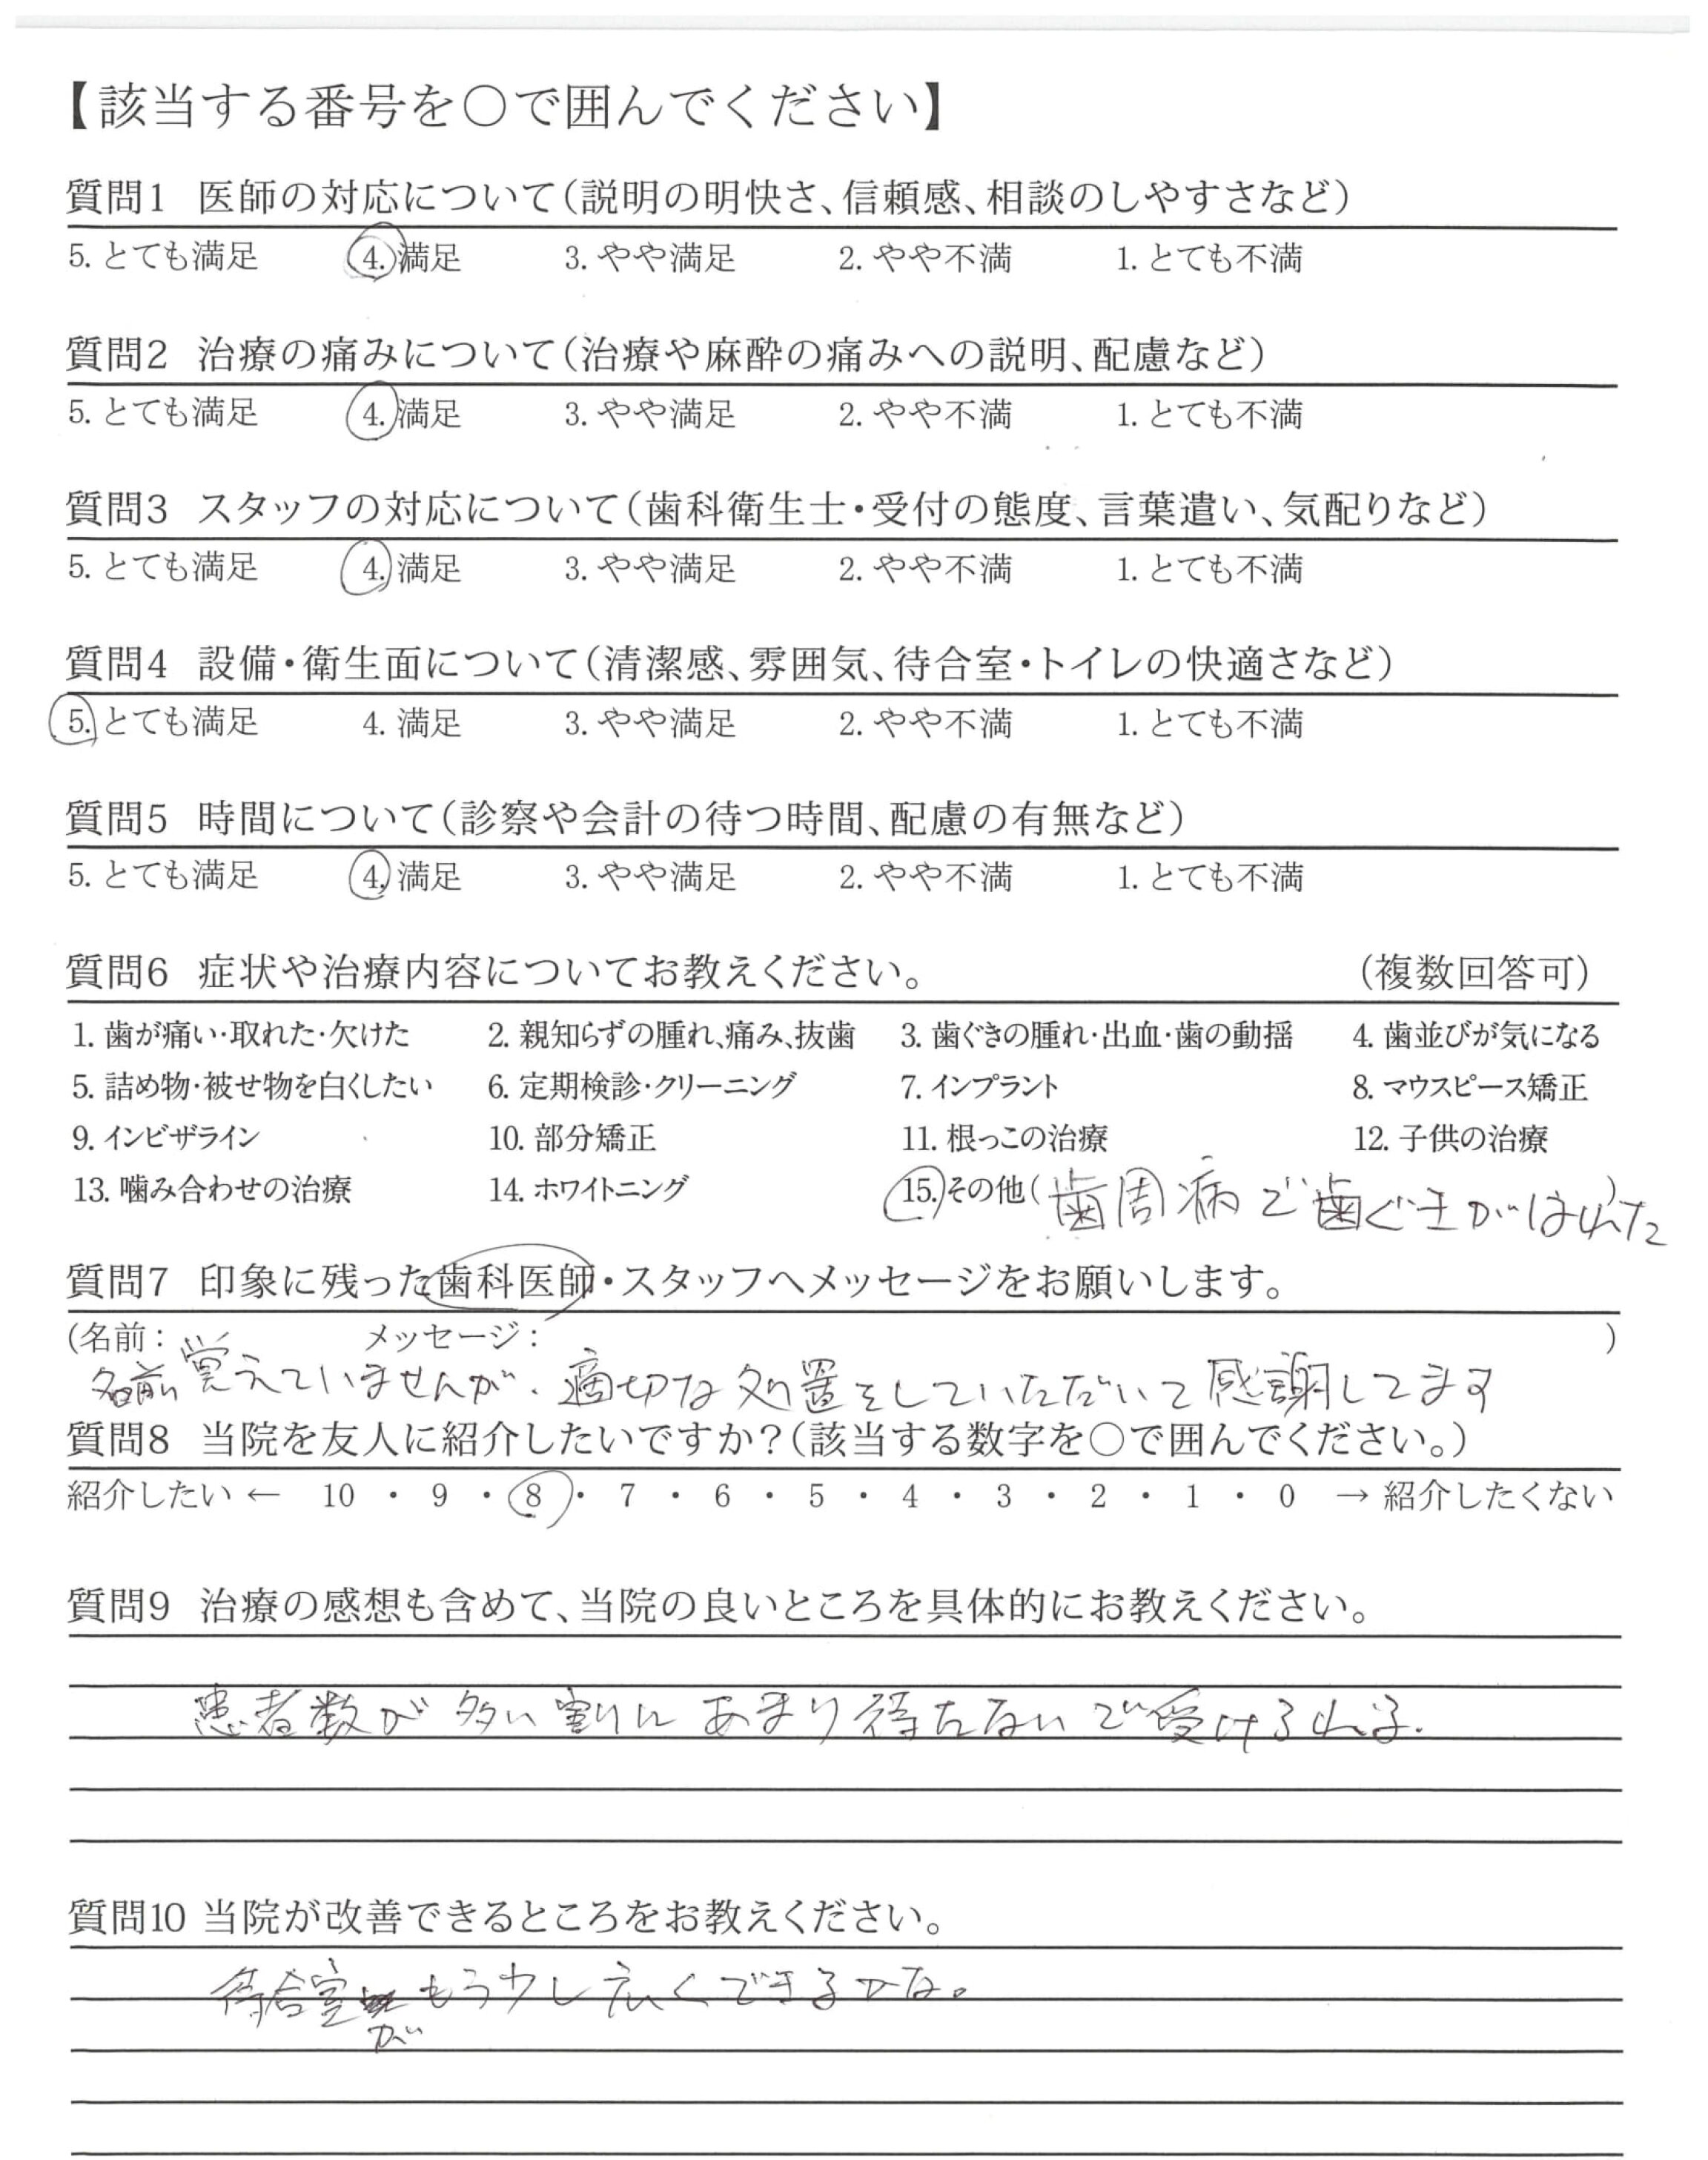 【該当する番号を○で囲んでください】
質問1 医師の対応について(説明の明快さ、信頼感、相談のしやすさなど)
5. とても満足 4. 満足 3. やや満足 2. やや不満 1. とても不満
質問2 治療の痛みについて(治療や麻酔の痛みへの説明、配慮など)
5. とても満足 4. 満足 3. やや満足 2. やや不満 1. とても不満
質問3 スタッフの対応について(歯科衛生士・受付の態度、言葉遣い、気配りなど)
5. とても満足 4. 満足 3. やや満足 2. やや不満 1. とても不満
質問4 設備・衛生面について(清潔感、雰囲気、待合室・トイレの快適さなど)
5. とても満足 4. 満足 3. やや満足 2. やや不満 1. とても不満
質問5 時間について(診察や会計の待つ時間、配慮の有無など)
5. とても満足 4. 満足 3. やや満足 2. やや不満 1. とても不満
質問6 症状や治療内容についてお教えください。 (複数回答可)
1. 歯が痛い・取れた・欠けた 2. 親知らずの腫れ、痛み、抜歯 3. 歯ぐきの腫れ・出血・歯の動揺 4. 歯並びが気になる
5. 詰め物・被せ物を白くしたい 6. 定期検診・クリーニング 7. インプラント 8. マウスピース矯正
9. インビザライン 10. 部分矯正 11. 根っこの治療 12. 子供の治療
13. 噛み合わせの治療 14. ホワイトニング 15. その他(歯周病で歯ぐきがはれた)
質問7 印象に残った歯科医師・スタッフへメッセージをお願いします。
(名前: メッセージ: )
名前覚えていませんが、適切な処置をしていただいて感謝してます
質問8 当院を友人に紹介したいですか?(該当する数字を○で囲んでください。)
紹介したい ← 10 ・ 9 ・ 8 ・ 7 ・ 6 ・ 5 ・ 4 ・ 3 ・ 2 ・ 1 ・ 0 → 紹介したくない
質問9 治療の感想も含めて、当院の良いところを具体的にお教えください。
患者数が多い割にあまり待たないで受けられる.
質問10 当院が改善できるところをお教えください。
待合室がもう少し広くできるかな。